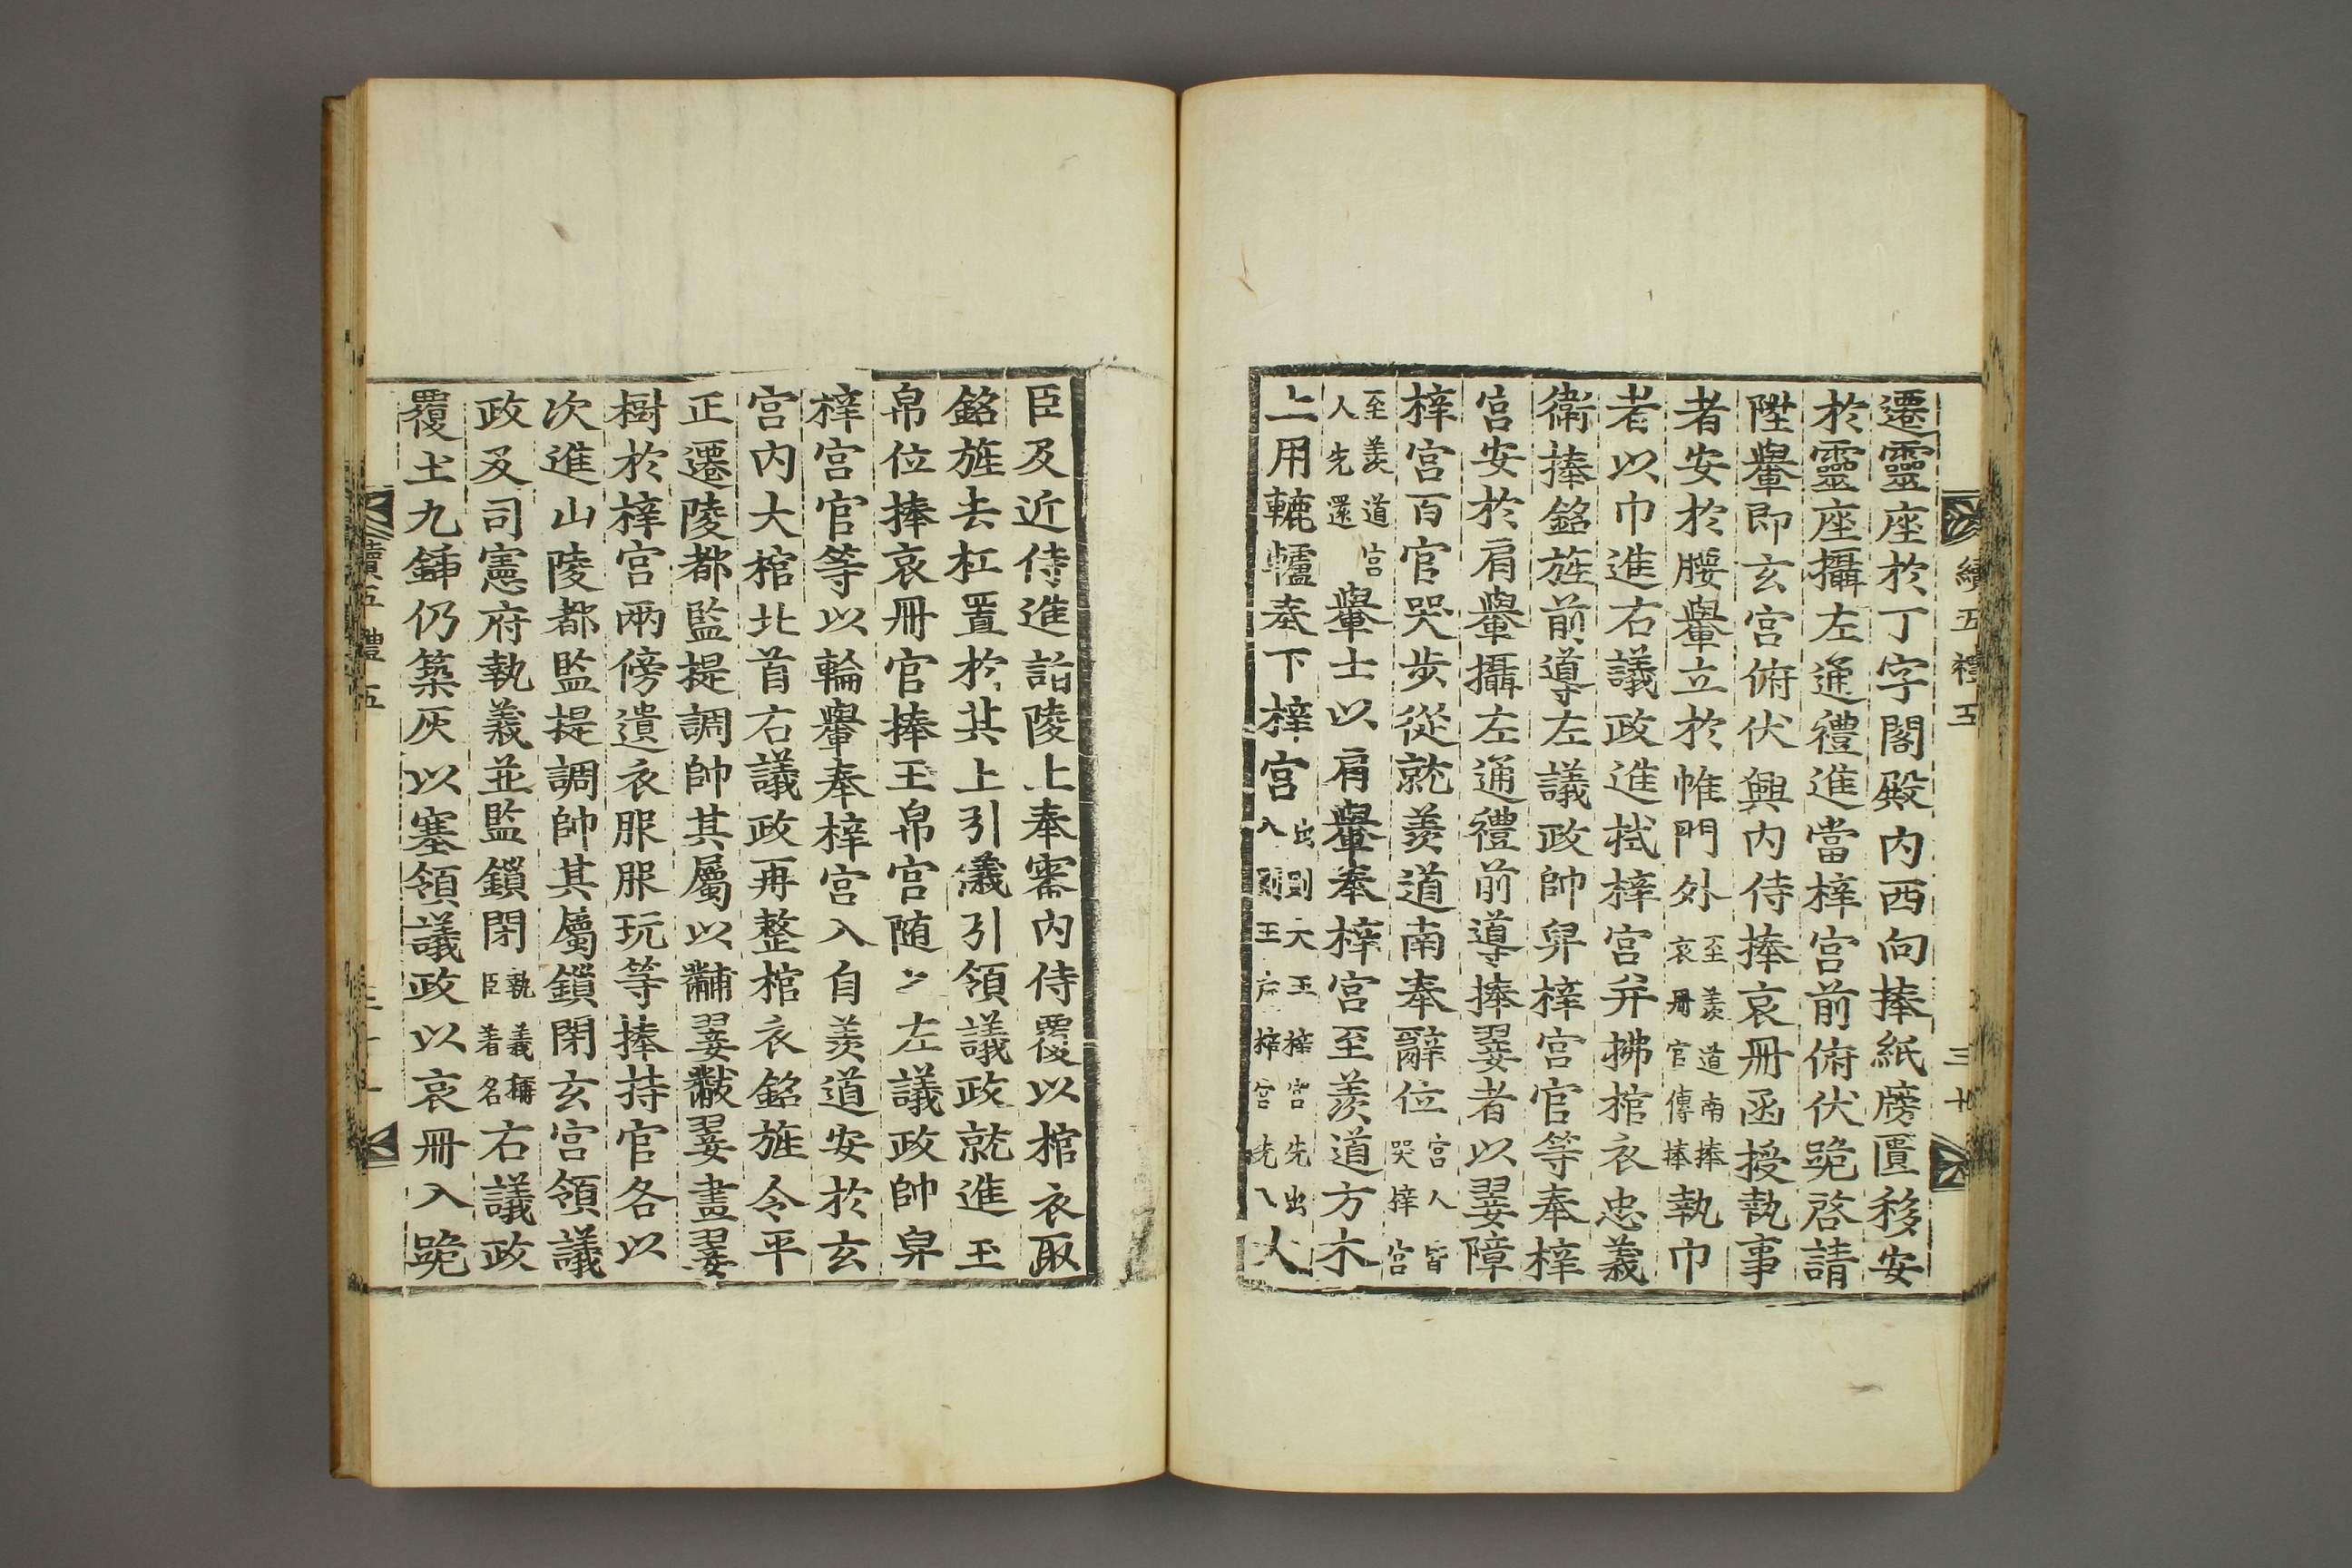 續五禮五
三十
遷靈座於丁字閣殿內西向捧紙牓匱移安
於靈座攝左通禮進當梓宮前俯伏跪啓請
陞轝即玄宮俯伏興內侍捧哀冊函授執事
者安於腰轝立於帷門外至羨道南捧哀冊官傳捧執巾
者以巾進右議政進拭梓宮并拂棺衣忠義
衛捧銘旌前導左議政帥舁梓宮官等奉梓
宮安於肩轝攝左通禮前導捧翣者以翣障
梓宮百官哭步從就羨道南奉辭位宮人皆哭梓宮
至羨道宮人先還轝士以肩轝奉梓宮至羨道方木
上用轆轤奉下梓宮出則大王梓宮先出入則王后梓宮先入大
臣及近侍進詣陵上奉審內侍覆以棺衣取
銘旌去杠置於其上引儀引領議政就進玉
帛位捧哀冊官捧玉帛官随之左議政帥舁
梓宮官等以輪轝奉梓宮入自羨道安於玄
宮內大棺北首右議政再整棺衣銘旌令平
正遷陵都監提調帥其屬以黼翣黻翣畫翣
樹於梓宮兩傍遺衣服服玩等捧持官各以
次進山陵都監提調帥其屬鎖閉玄宮領議
政及司憲府執義並監鎖閉執義稱臣着名右議政
覆土九鍤仍築灰以塞領議政以哀冊入跪
續五禮五